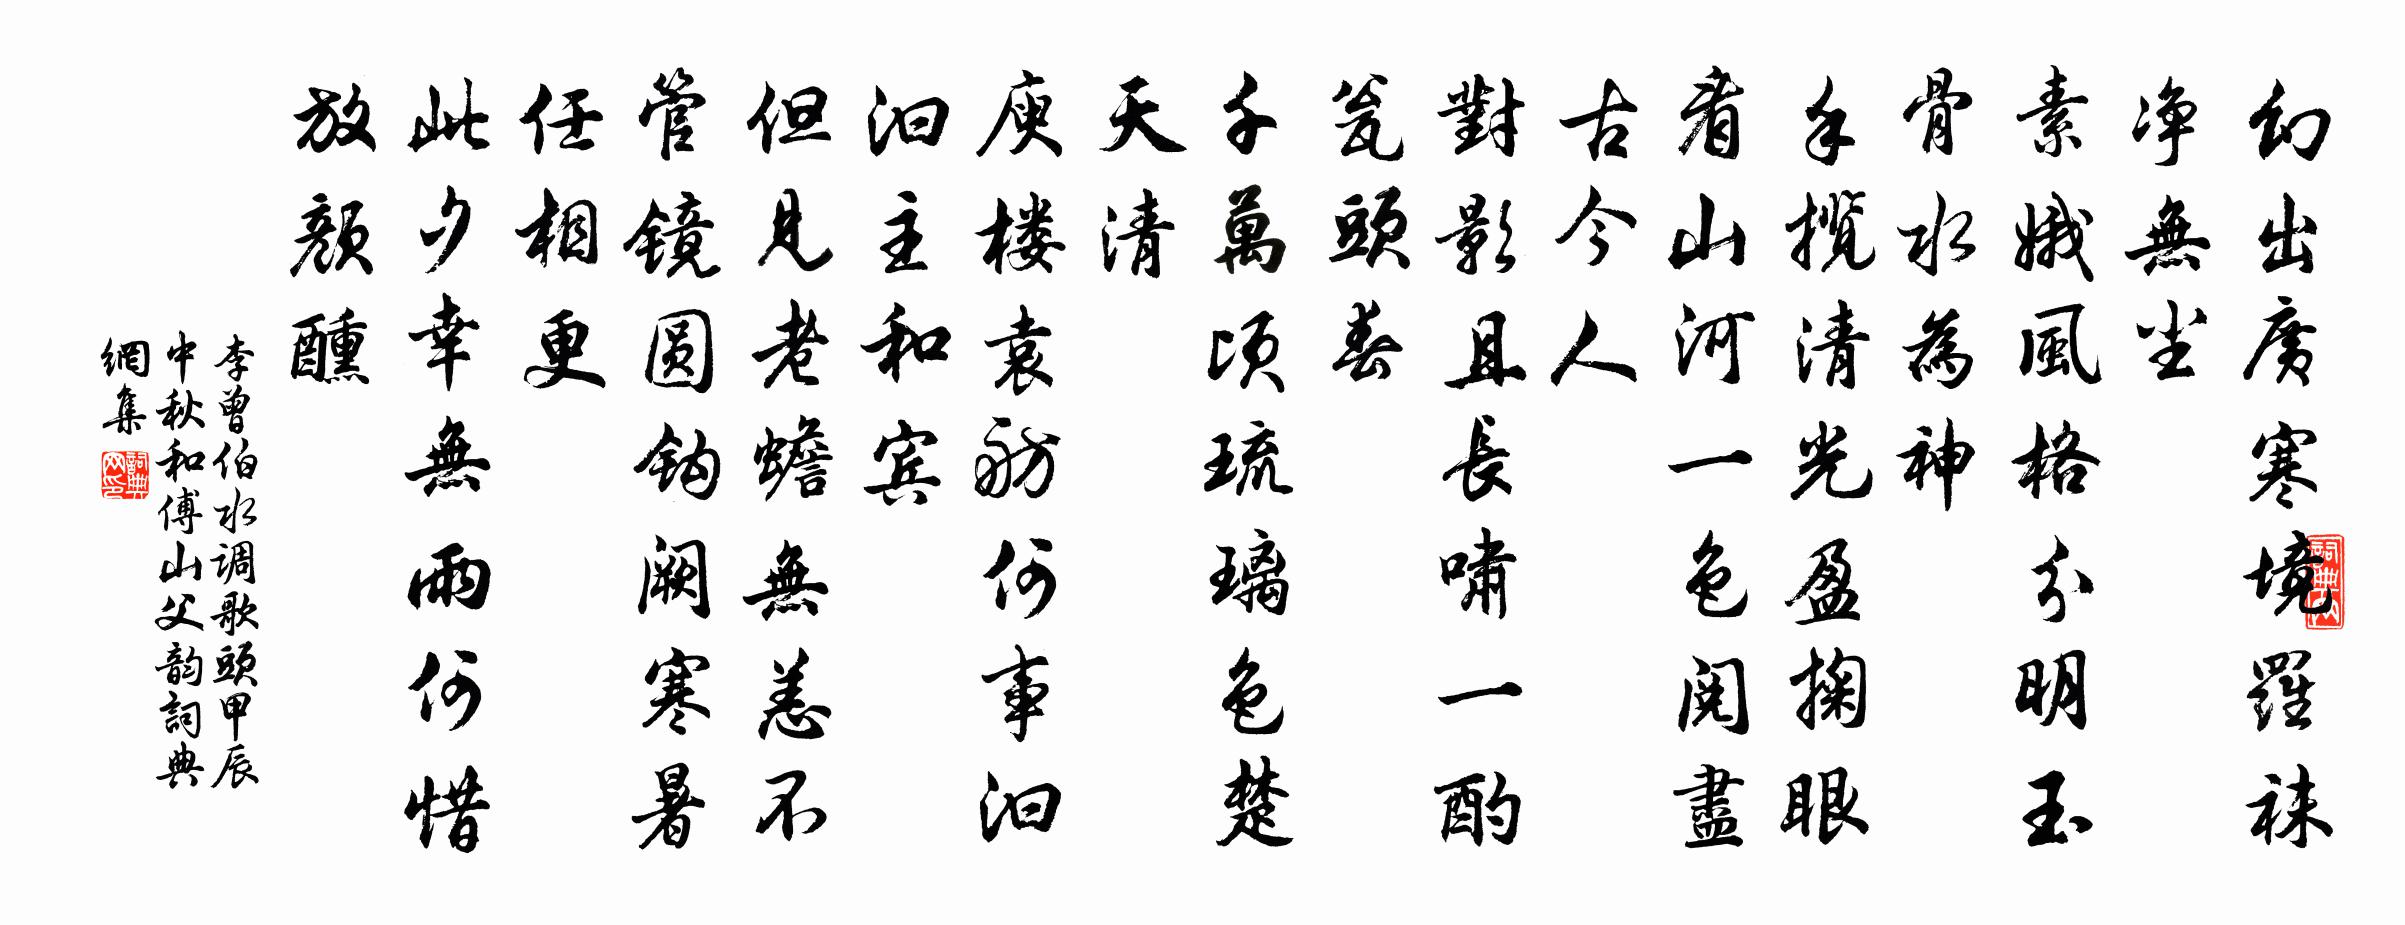 幻出廣寒境羅袜
净無尘
素娥風格分明玉
骨水為神
手攬清光盈掬眼
看山河一色閱盡
古今人
對影且長啸一酌
瓮頭春
千萬頃琉璃色楚
天清
庾楼袁舫何事汩
汩主和宾
但見老蟾無恙不
管镜圆钩阙寒暑
任相更
此夕幸無雨何惜
放颜醺
李曾伯水调歌頭甲辰
中秋和傅山父韵詞典
網集